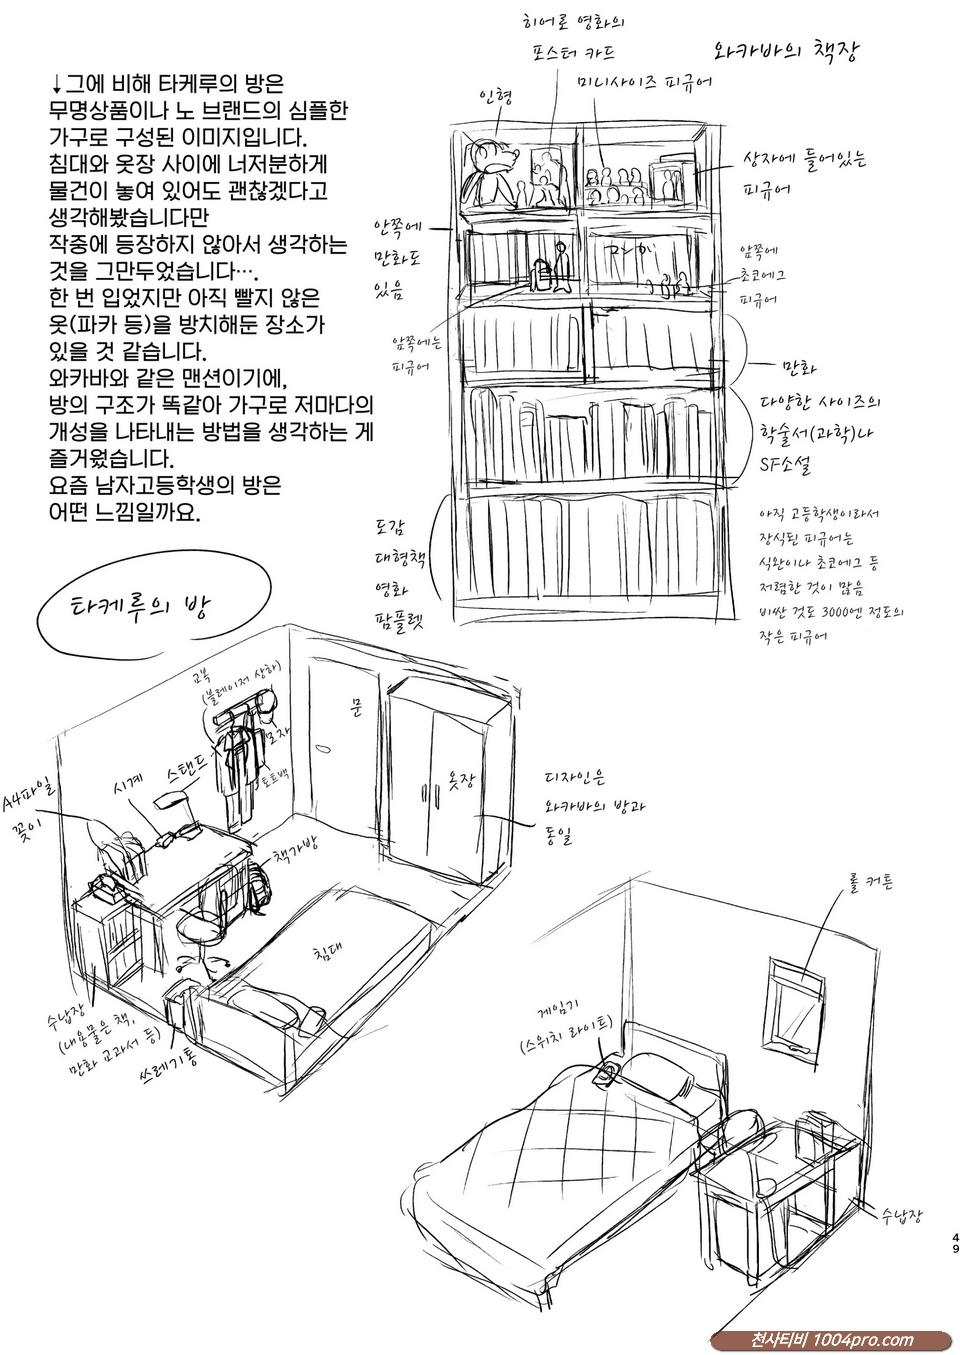 히어로 영화의
포스터 카드
와카바의 책장
인형
미니사이즈 피규어
상자에 들어있는
피규어
↓그에 비해 타케루의 방은
무명상품이나 노 브랜드의 심플한
가구로 구성된 이미지입니다.
침대와 옷장 사이에 너저분하게
물건이 놓여 있어도 괜찮겠다고
생각해봤습니다만
작중에 등장하지 않아서 생각하는
것을 그만두었습니다….
한 번 입었지만 아직 빨지 않은
옷(파카 등)을 방치해둔 장소가
있을 것 같습니다.
와카바와 같은 맨션이기에,
방의 구조가 똑같아 가구로 저마다의
개성을 나타내는 방법을 생각하는 게
즐거웠습니다.
요즘 남자고등학생의 방은
어떤 느낌일까요.
안쪽에
만화도
있음
マンガ
앞쪽에
초코에그
피규어
앞쪽에는
피규어
만화
다양한 사이즈의
학술서(과학)나
SF소설
도감
대형책
영화
팜플렛
아직 고등학생이라서
장식된 피규어는
식완이나 초코에그 등
저렴한 것이 많음
비싼 것도 3000엔 정도의
작은 피규어
타케루의 방
교복
(블레이저 상하)
모자
토트백
문
옷장
디자인은
와카바의 방과
동일
A4파일
꽂이
시계
스탠드
책가방
침대
수납장
(내용물은 책,
만화 교과서 등)
쓰레기통
롤 커튼
게임기
(스위치 라이트)
수납장
49
천사티비 1004pro.com